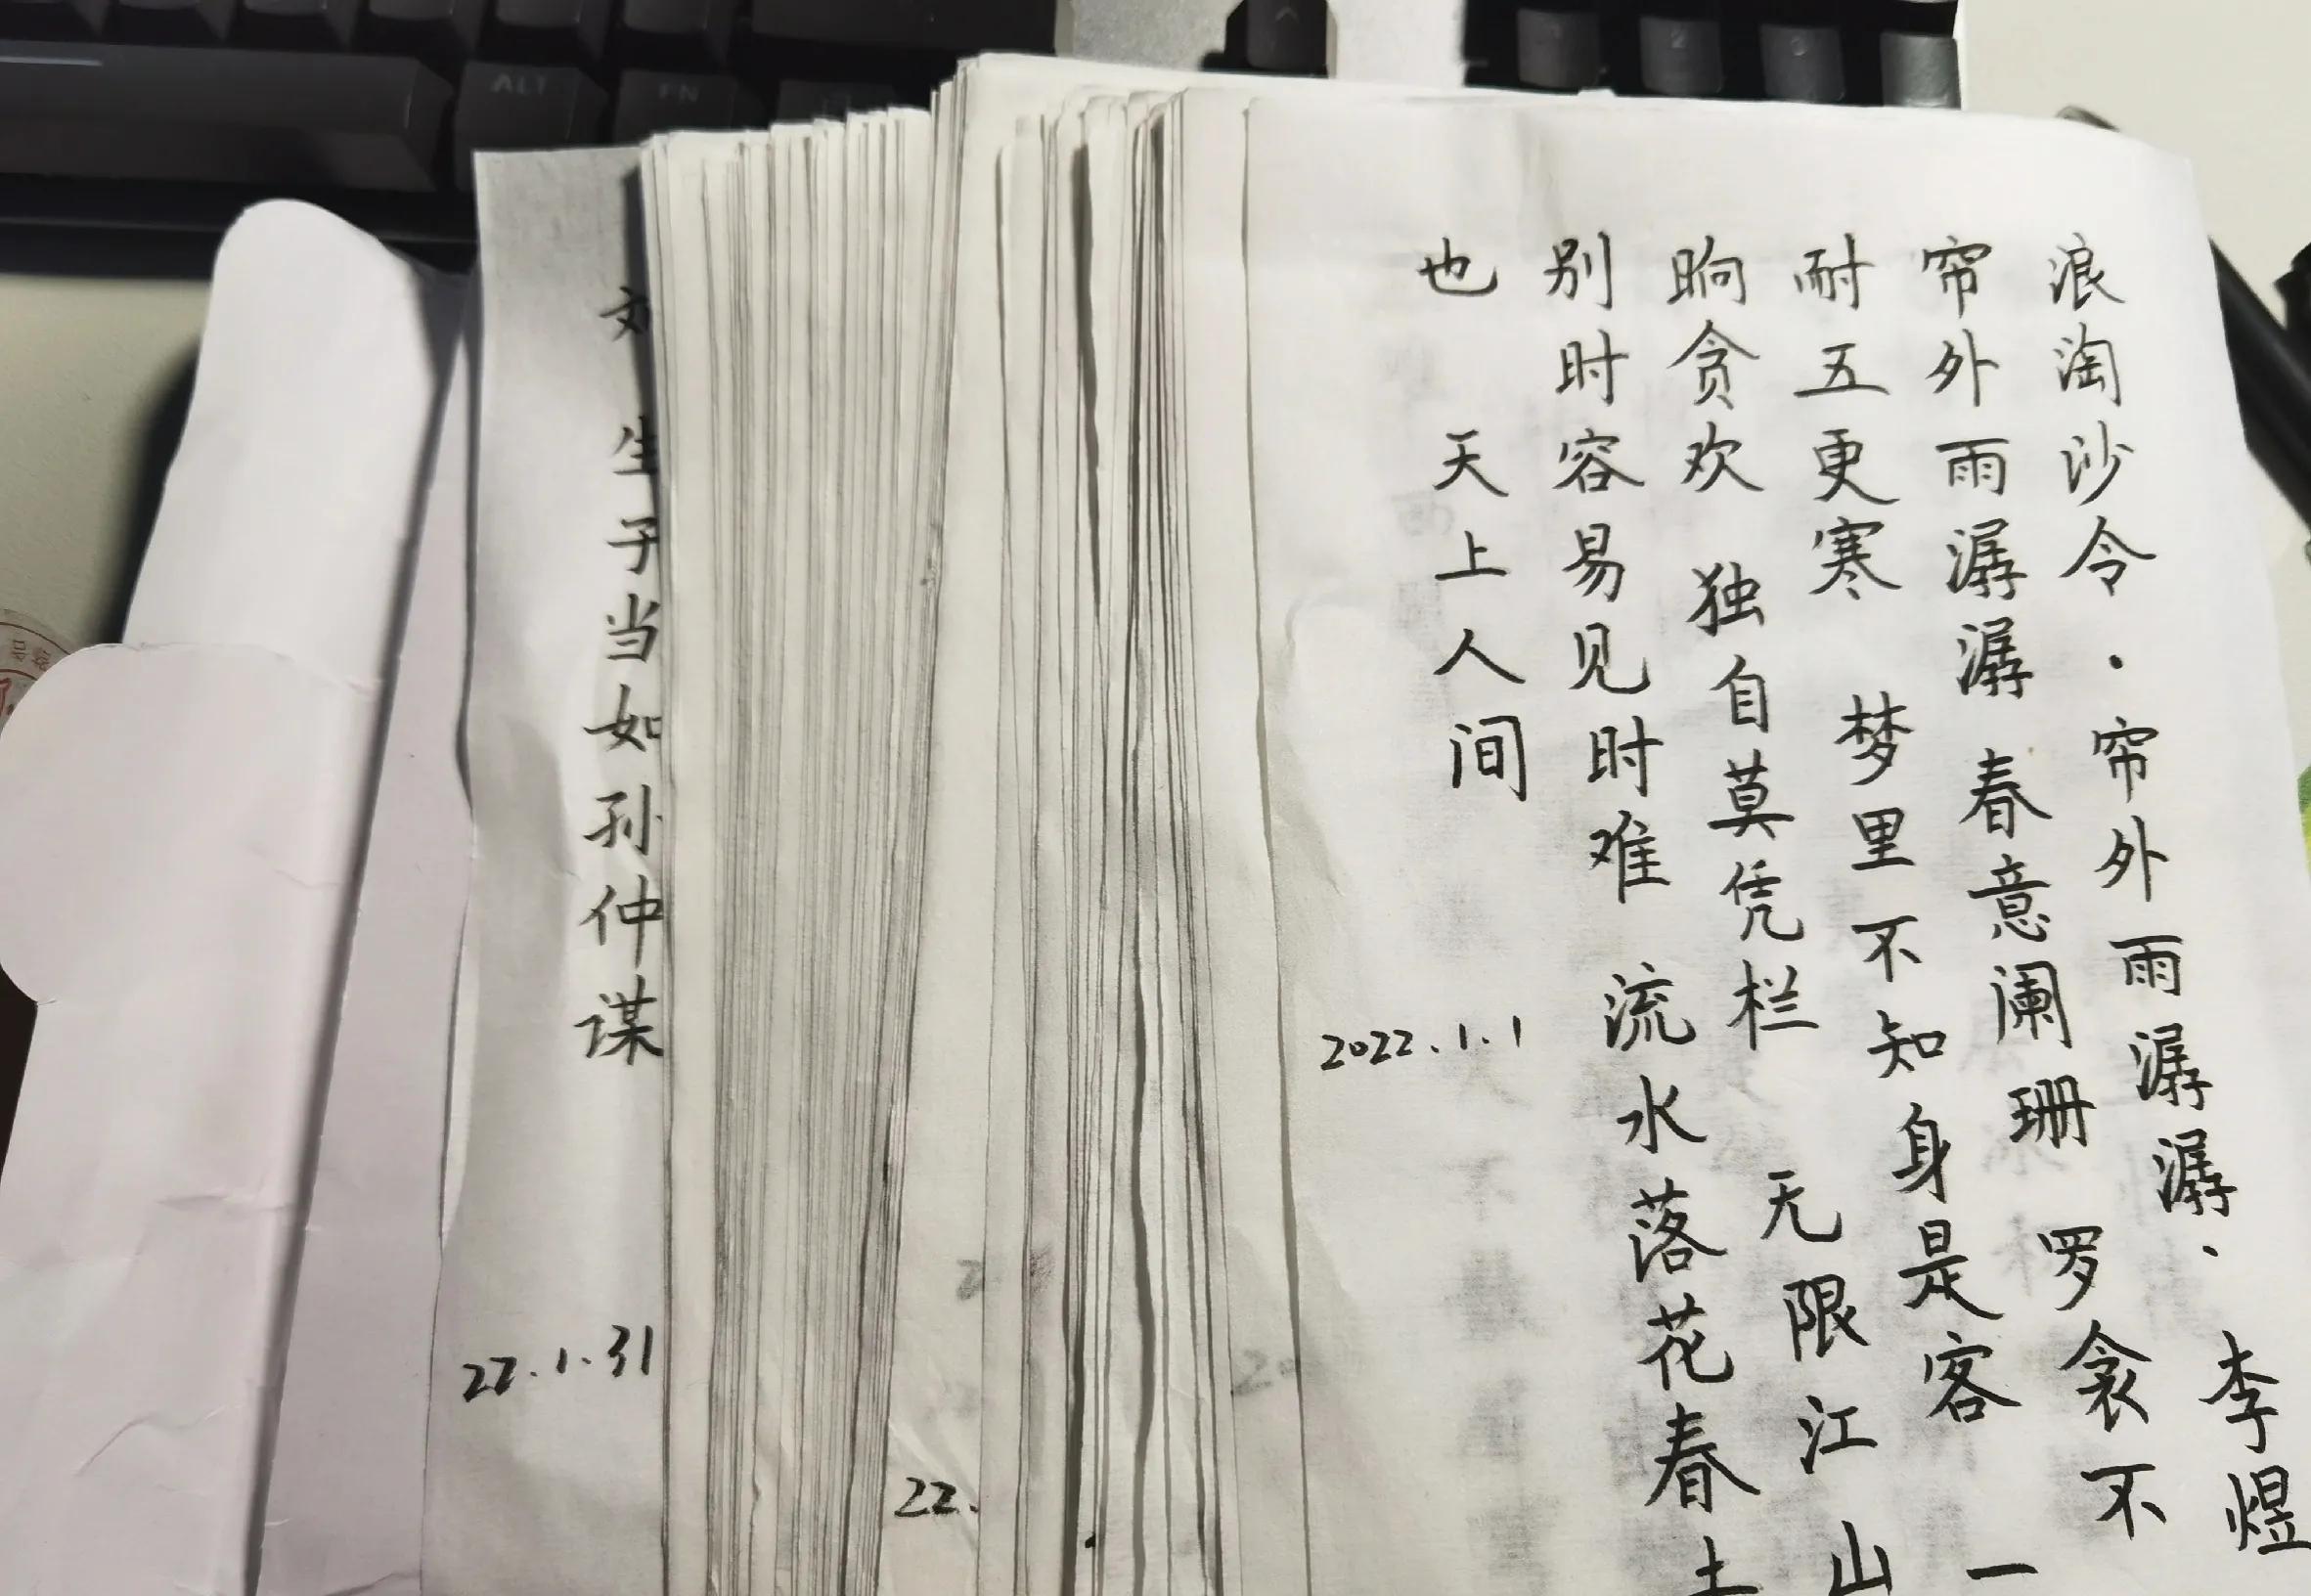 浪淘沙令·帘外雨潺潺·李煜
帘外雨潺潺 春意阑珊 罗衾不
耐五更寒 梦里不知身是客 一
晌贪欢 独自莫凭栏 无限江山
别时容易见时难 流水落花春
也 天上人间
2022.1.1
22.
生子当如孙仲谋
22.1.31
ALT
FN